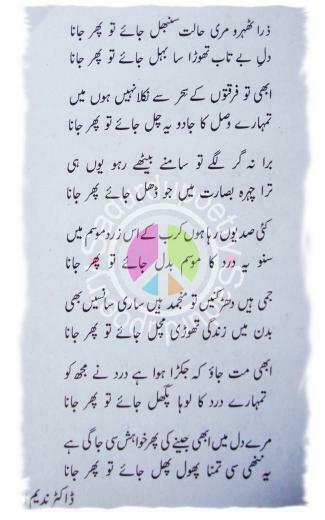 ذرا ٹھہرو مری حالت سنبھل جائے تو پھر جانا
دلِ بے تاب تھوڑا سا بہل جائے تو پھر جانا
ابھی تو فرقتوں کے سحر سے نکلا نہیں ہوں میں
تمہارے وصل کا جادو یہ چل جائے تو پھر جانا
برا نہ گر لگے تو سامنے بیٹھے رہو یوں ہی
ترا چہرہ بصارت میں جو ڈھل جائے تو پھر جانا
کئی صدیوں رہا ہوں کرب کے اس زرد موسم میں
سنو یہ درد کا موسم بدل جائے تو پھر جانا
جمی ہیں دھڑکنیں تو منجمد ہیں ساری سانسیں بھی
بدن میں زندگی تھوڑی مچل جائے تو پھر جانا
ابھی مت جاؤ کہ جکڑا ہوا ہے درد نے مجھ کو
تمہارے درد کا لوہا پگھل جائے تو پھر جانا
مرے دل میں ابھی جینے کی پھر خواہش سی جاگی ہے
یہ ننھی سی تمنا پھول پھل جائے تو پھر جانا
ڈاکٹر ندیم